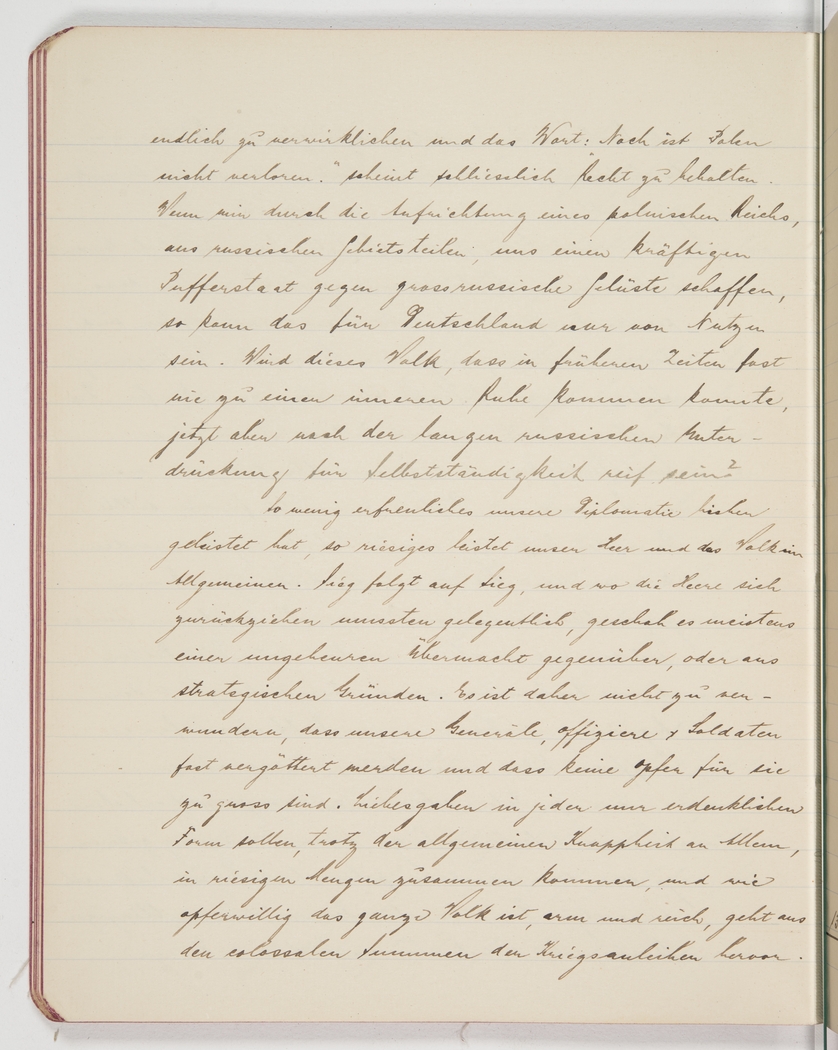 endlich zu verwirklichen und das Wort: Noch ist Polen
nicht verloren." scheint schliesslich Recht zu behalten.
Wenn wir durch die Aufrichtung eines polnischen Reichs,
aus russischen Gebietsteilen, uns einen kräftigen
Pufferstaat gegen grossrussische Gelüste schaffen,
so kann das für Deutschland nur von Nutzen
sein. Wird dieses Volk, dass in früheren Zeiten fast
nie zu einer inneren Ruhe kommen konnte,
jetzt aber nach der langen russischen Unter-
drückung für Selbstständigkeit reif sein?
So wenig erfreuliches unsere Diplomatie bisher
geleistet hat, so riesiges leistet unser Heer und das Volk im
Allgemeinen. Sieg folgt auf Sieg, und wo die Heere sich
zurückziehen mussten gelegentlich, geschah es meistens
einer ungeheuren Übermacht gegenüber, oder aus
strategischen Gründen. Es ist daher nicht zu ver-
wundern, dass unsere Generäle, Offiziere & Soldaten
fast vergöttert werden und dass keine Opfer für sie
zu gross sind. Liebesgaben in jeder nur erdenklichen
Form sollen, trotz der allgemeinen Knappheit an Allem,
in riesigen Mengen zusammen kommen, und wie
opferwillig das ganze Volk ist, arm und reich, geht aus
den colossalen Summen der Kriegsanleihen hervor.